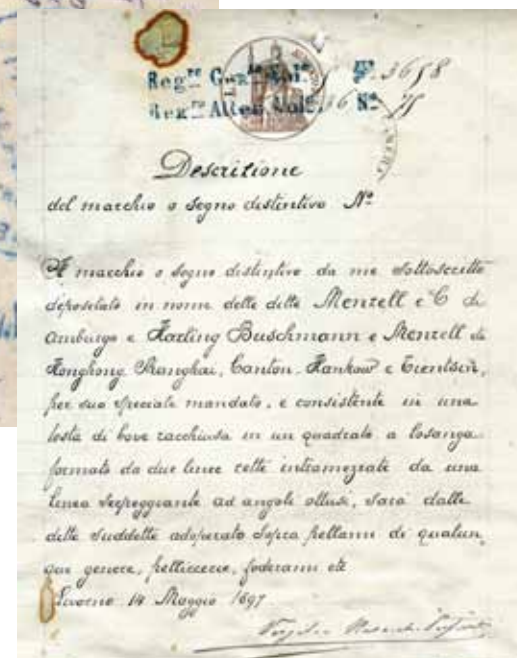 Reg.re Gen.le Vol. Nº 3658
Reg.re Attes. Vol. 36 Nº 75
Descrizione
del marchio o segno distintivo Nº
Il marchio o segno distintivo da me sottoscritto
depositato in nome delle ditte Menzell e C di
Amburgo e Harling Buschmann e Menzell di
Hongkong Shanghai, Canton-Hankow e Tientsin,
per suo speciale mandato, e consistente in una
testa di bove racchiusa in un quadrato a losanga
formato da due linee rette intramezzate da una
linea serpeggiante ad angoli ottusi, sarà dalle
ditte suddette adoperato sopra pellami di qualun
que genere, pelliccerie, foderami etc
Livorno 14 Maggio 1897